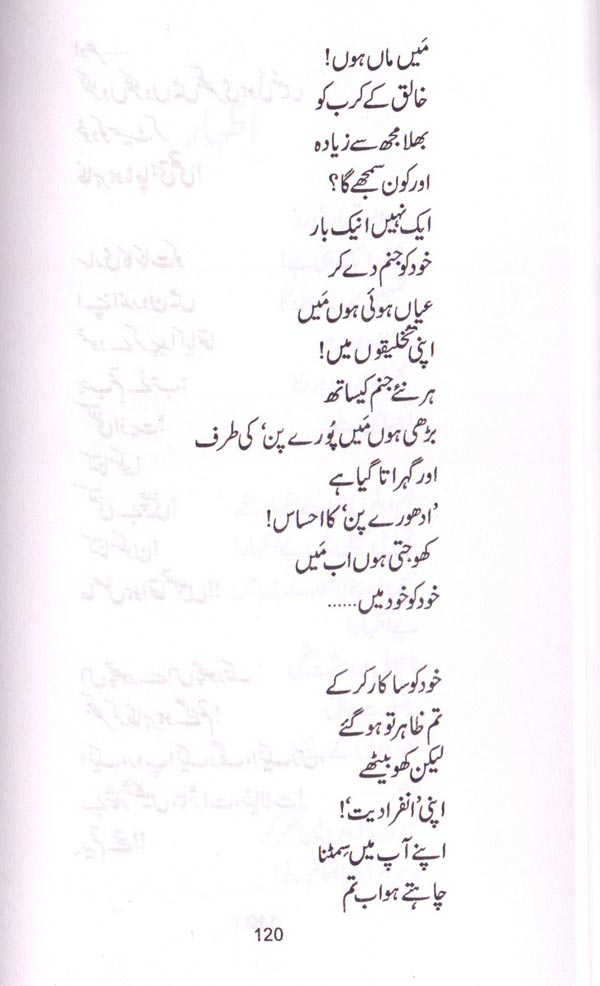 مَیں ماں ہوں!
خالق کے کرب کو
بھلا مجھ سے زیادہ
اور کون سمجھے گا؟
ایک نہیں انیک بار
خود کو جنم دے کر
عیاں ہوئی ہوں مَیں
اپنی تخلیقوں میں!
ہر نئے جنم کیساتھ
بڑھی ہوں مَیں پُورے پن‘ کی طرف
اور گہراتا گیا ہے
’ادھورے پن‘ کا احساس!
کھوجتی ہوں اب مَیں
خود کو خود میں......
خود کو ساکار کر کے
تم ظاہر تو ہو گئے
لیکن کھو بیٹھے
اپنی ’انفرادیت‘!
اپنے آپ میں سِمٹنا
چاہتے ہو اب تم
120